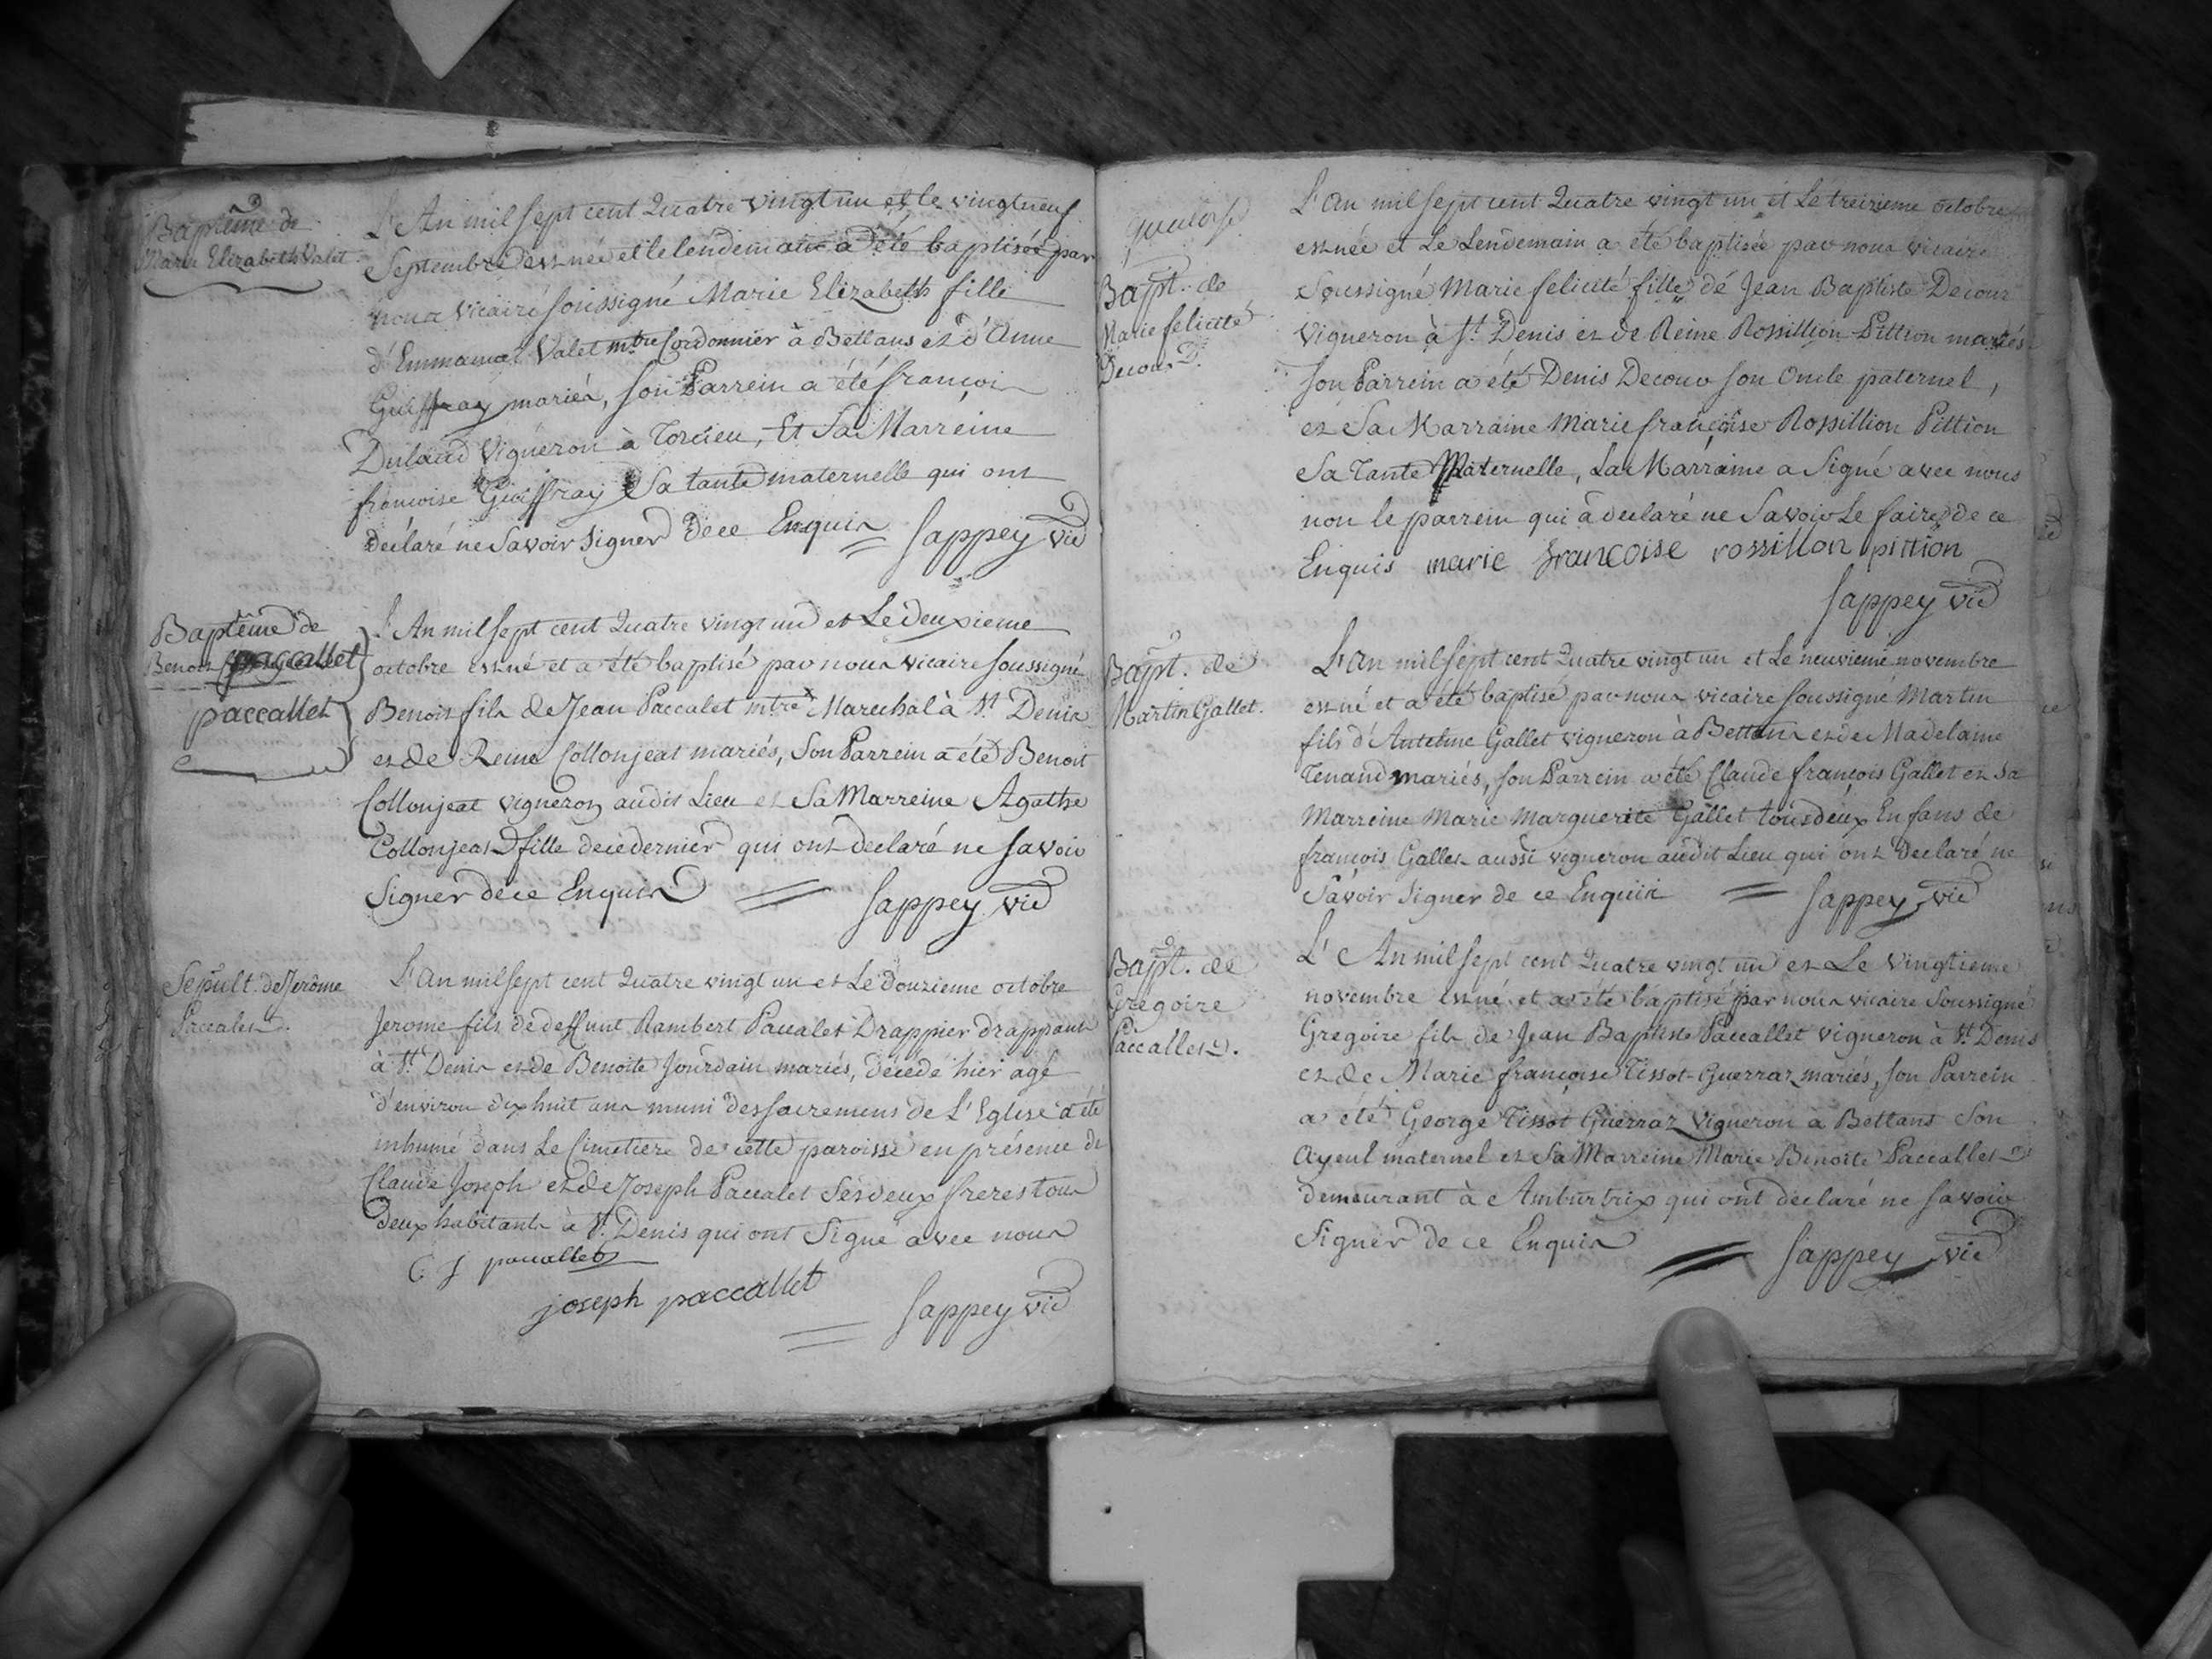 Baptême de
Marie Elizabeth Valet
L'An mil sept cent Quatre vingt un et le vingt neuf
Septembre est née et le lendemain a été baptisée par
nous vicaire soussigné Marie Elizabeth fille
d'Emmanuel Valet mtre Cordonnier à Bettans et d'Anne
Geoffray mariés, son Parrein a été françois
Dulaud Vigneron à Torcieu, Et Sa Marreine
francoise Geoffray Sa tante maternelle qui ont
déclaré ne Savoir Signer de ce Enquis Sappey vic
Baptême de
Benoit paccallet
paccallet
L'An mil sept cent Quatre vingt un et Le deuxieme
octobre est né et a été baptisé par nous vicaire soussigné
Benoit fils de Jean Paccalet mtre Marechal à St Denis
et de Reine Collonjeat mariés, Son Parrein a été Benoit
Collonjeat vigneron audit Lieu et Sa Marreine Agathe
Collonjeat fille de ce dernier qui ont declaré ne savoir
Signer de ce Enquis Sappey vic
Sépult. de Jerôme
Paccalet.
L'an mil sept cent Quatre vingt un et Le Douzieme octobre
Jerome fils de deffunt Rambert Paccalet Drappier drappant
à St Denis et de Benoite Jourdain mariés, décédé hier agé
d'environ dix huit ans muni des sacremens de L'Eglise a été
inhumé dans Le Cimetiere de cette paroisse en présence de
Claude Joseph et de Joseph Paccalet Ses deux freres tous
deux habitants à St Denis qui ont Signé avec nous
C J paccallet
joseph paccallet
Sappey vic
Bapt. de
Marie felicité
Decour
L'an mil sept cent Quatre vingt un et Le treizieme octobre
est née et Le Lendemain a été baptisée par nous vicaire
Soussigné Marie felicité fille dé Jean Baptiste Decour
vigneron à St Denis et de Reine Rossillion Pittion mariés
son Parrein a été Denis Decour son Oncle paternel,
et Sa Marraine Marie françoise Rossillion Pittion
Sa Tante Maternelle, La Marraine a Signé avec nous
non le parrein qui a declaré ne Savoir Le faire de ce
Enquis marie francoise rossillon pittion
Sappey vic
Bapt. de
Martin Gallet.
L'an mil sept cent Quatre vingt un et Le neuvieme novembre
est né et a été baptisé par nous vicaire soussigné Martin
fils d'Antelme Gallet vigneron à Bettans et de Madelaine
Tenand mariés, son Parrein a été Claude françois Gallet et Sa
Marreine Marie Marguerite Gallet tous deux Enfans de
françois Gallet aussi vigneron audit Lieu qui ont Declaré ne
Savoir Signer de ce Enquis Sappey vic
Bapt. de
Gregoire
Paccallet.
L'An mil sept cent Quatre vingt un et Le vingtieme
novembre est né et a été baptisé par nous vicaire Soussigné
Gregoire fils de Jean Baptiste Paccallet vigneron à St Denis
et de Marie françoise Tissot-Guerraz mariés, son Parrein
a été George Tissot Guerraz vigneron à Bettans Son
Ayeul maternel et Sa Marreine Marie Benoite Paccallet
demeurant à Ambutrix qui ont declaré ne savoir
Signer de ce Enquis Sappey vic